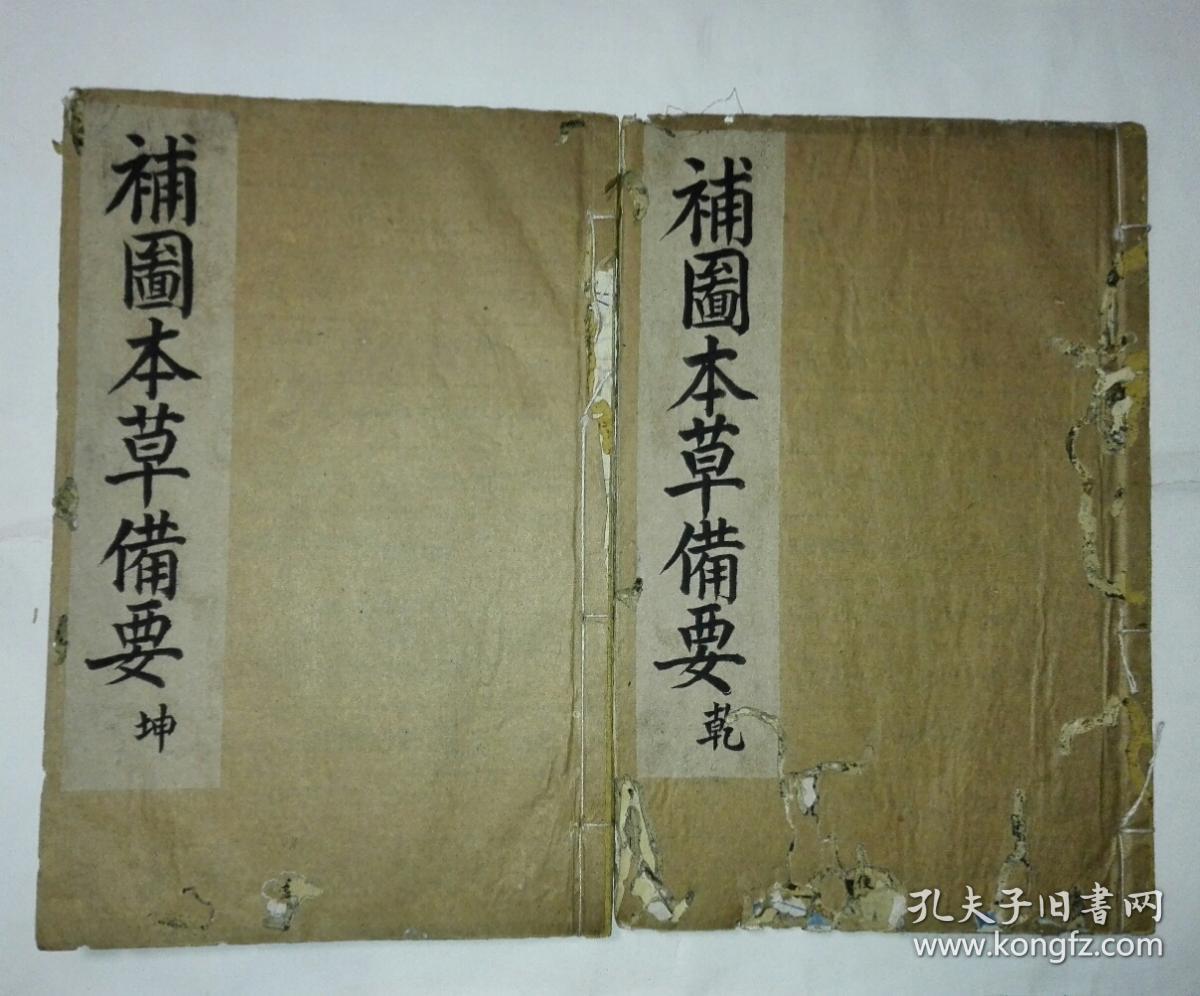 補圖本草備要 乾
補圖本草備要 坤
孔夫子旧書网
www.kongfz.com